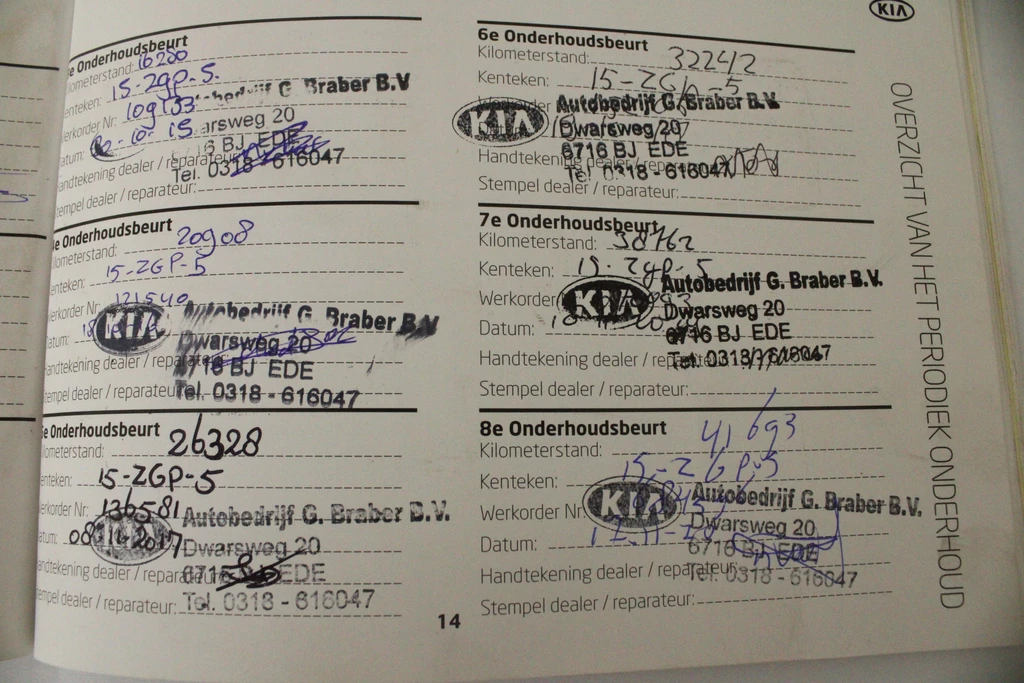 KIA
OVERZICHT VAN HET PERIODIEK ONDERHOUD
e Onderhoudsbeurt
lometerstand: 16200
enteken: 15-zgp-5.
erkorder Nr: 109133
atum: 10-15
andtekening dealer / reparateur:
tempel dealer / reparateur:
G. Braber B.V
arsweg 20
6 BJ EDE
Tel. 0318-616047
e Onderhoudsbeurt
Kilometerstand: 20908
enteken: 15-ZGP-5
erkorder Nr: 121540
atum:
KIA
Autobedrijf G. Braber B.V
Dwarsweg 20
6716 BJ EDE
Tel. 0318 - 616047
Handtekening dealer / reparateur:
tempel dealer / reparateur:
5e Onderhoudsbeurt
lometerstand: 26328
enteken: 15-ZGP-5
erkorder Nr: 136581
atum: 08-11-2017
Autobedrijf G. Braber B.V.
Dwarsweg 20
6716 EDE
Tel. 0318 - 616047
andtekening dealer / reparateur:
mpel dealer / reparateur:
6e Onderhoudsbeurt
Kilometerstand: 32242
Kenteken: 15-ZGP-5
KIA
Autobedrijf G. Braber B.V.
Dwarsweg 20
6716 BJ EDE
Tel. 0318-616047
Handtekening dealer / reparateur:
Stempel dealer / reparateur:
7e Onderhoudsbeurt
Kilometerstand: 38762
Kenteken: 15-Zgp-5
Werkorder
Datum:
KIA
Autobedrijf G. Braber B.V.
Dwarsweg 20
6716 BJ EDE
Tel. 0318-616047
Handtekening dealer / reparateur:
Stempel dealer / reparateur:
8e Onderhoudsbeurt
Kilometerstand: 41693
Kenteken: 15-ZGP-5
Werkorder Nr:
Datum:
KIA
Autobedrijf G. Braber B.V.
Dwarsweg 20
6716 BJ EDE
Tel. 0318 - 616047
Handtekening dealer / reparateur:
Stempel dealer / reparateur:
14